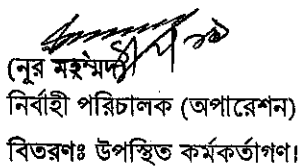 (নূর মহম্মদ)
নির্বাহী পরিচালক (অপারেশন)
বিতরণঃ উপস্থিত কর্মকর্তাগণ।